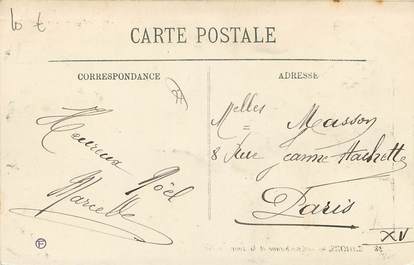 CARTE POSTALE
CORRESPONDANCE
ADRESSE
Heureux Noël
Marcelle
Melles Masson
8 Rue Jeanne Hachette
Paris
XV